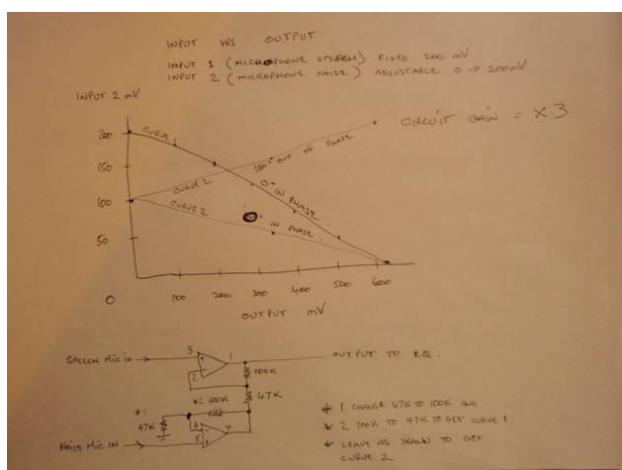 INPUT VRS OUTPUT
INPUT 1 (MICROPHONE SPEECH) FIXED 200 mV
INPUT 2 (MICROPHONE NOISE) ADJUSTABLE 0 → 200mV
INPUT 2 mV
CIRCUIT GAIN = X3
200
CURVE 1
150
180° OUT OF PHASE
100
CURVE 2
0° IN PHASE
CURVE 2
IN PHASE
50
0
100
200
300
400
500
600
OUTPUT mV
SPEECH MIC IN
3
1
2
OUTPUT TO EQ.
100K
*2 100K
47K
*1
47K
6
5
7
NOISE MIC IN
* 1 CHANGE 47K TO 100K AND
* 2 100K TO 47K TO GET CURVE 1
* LEAVE AS DRAWN TO GET
CURVE 2